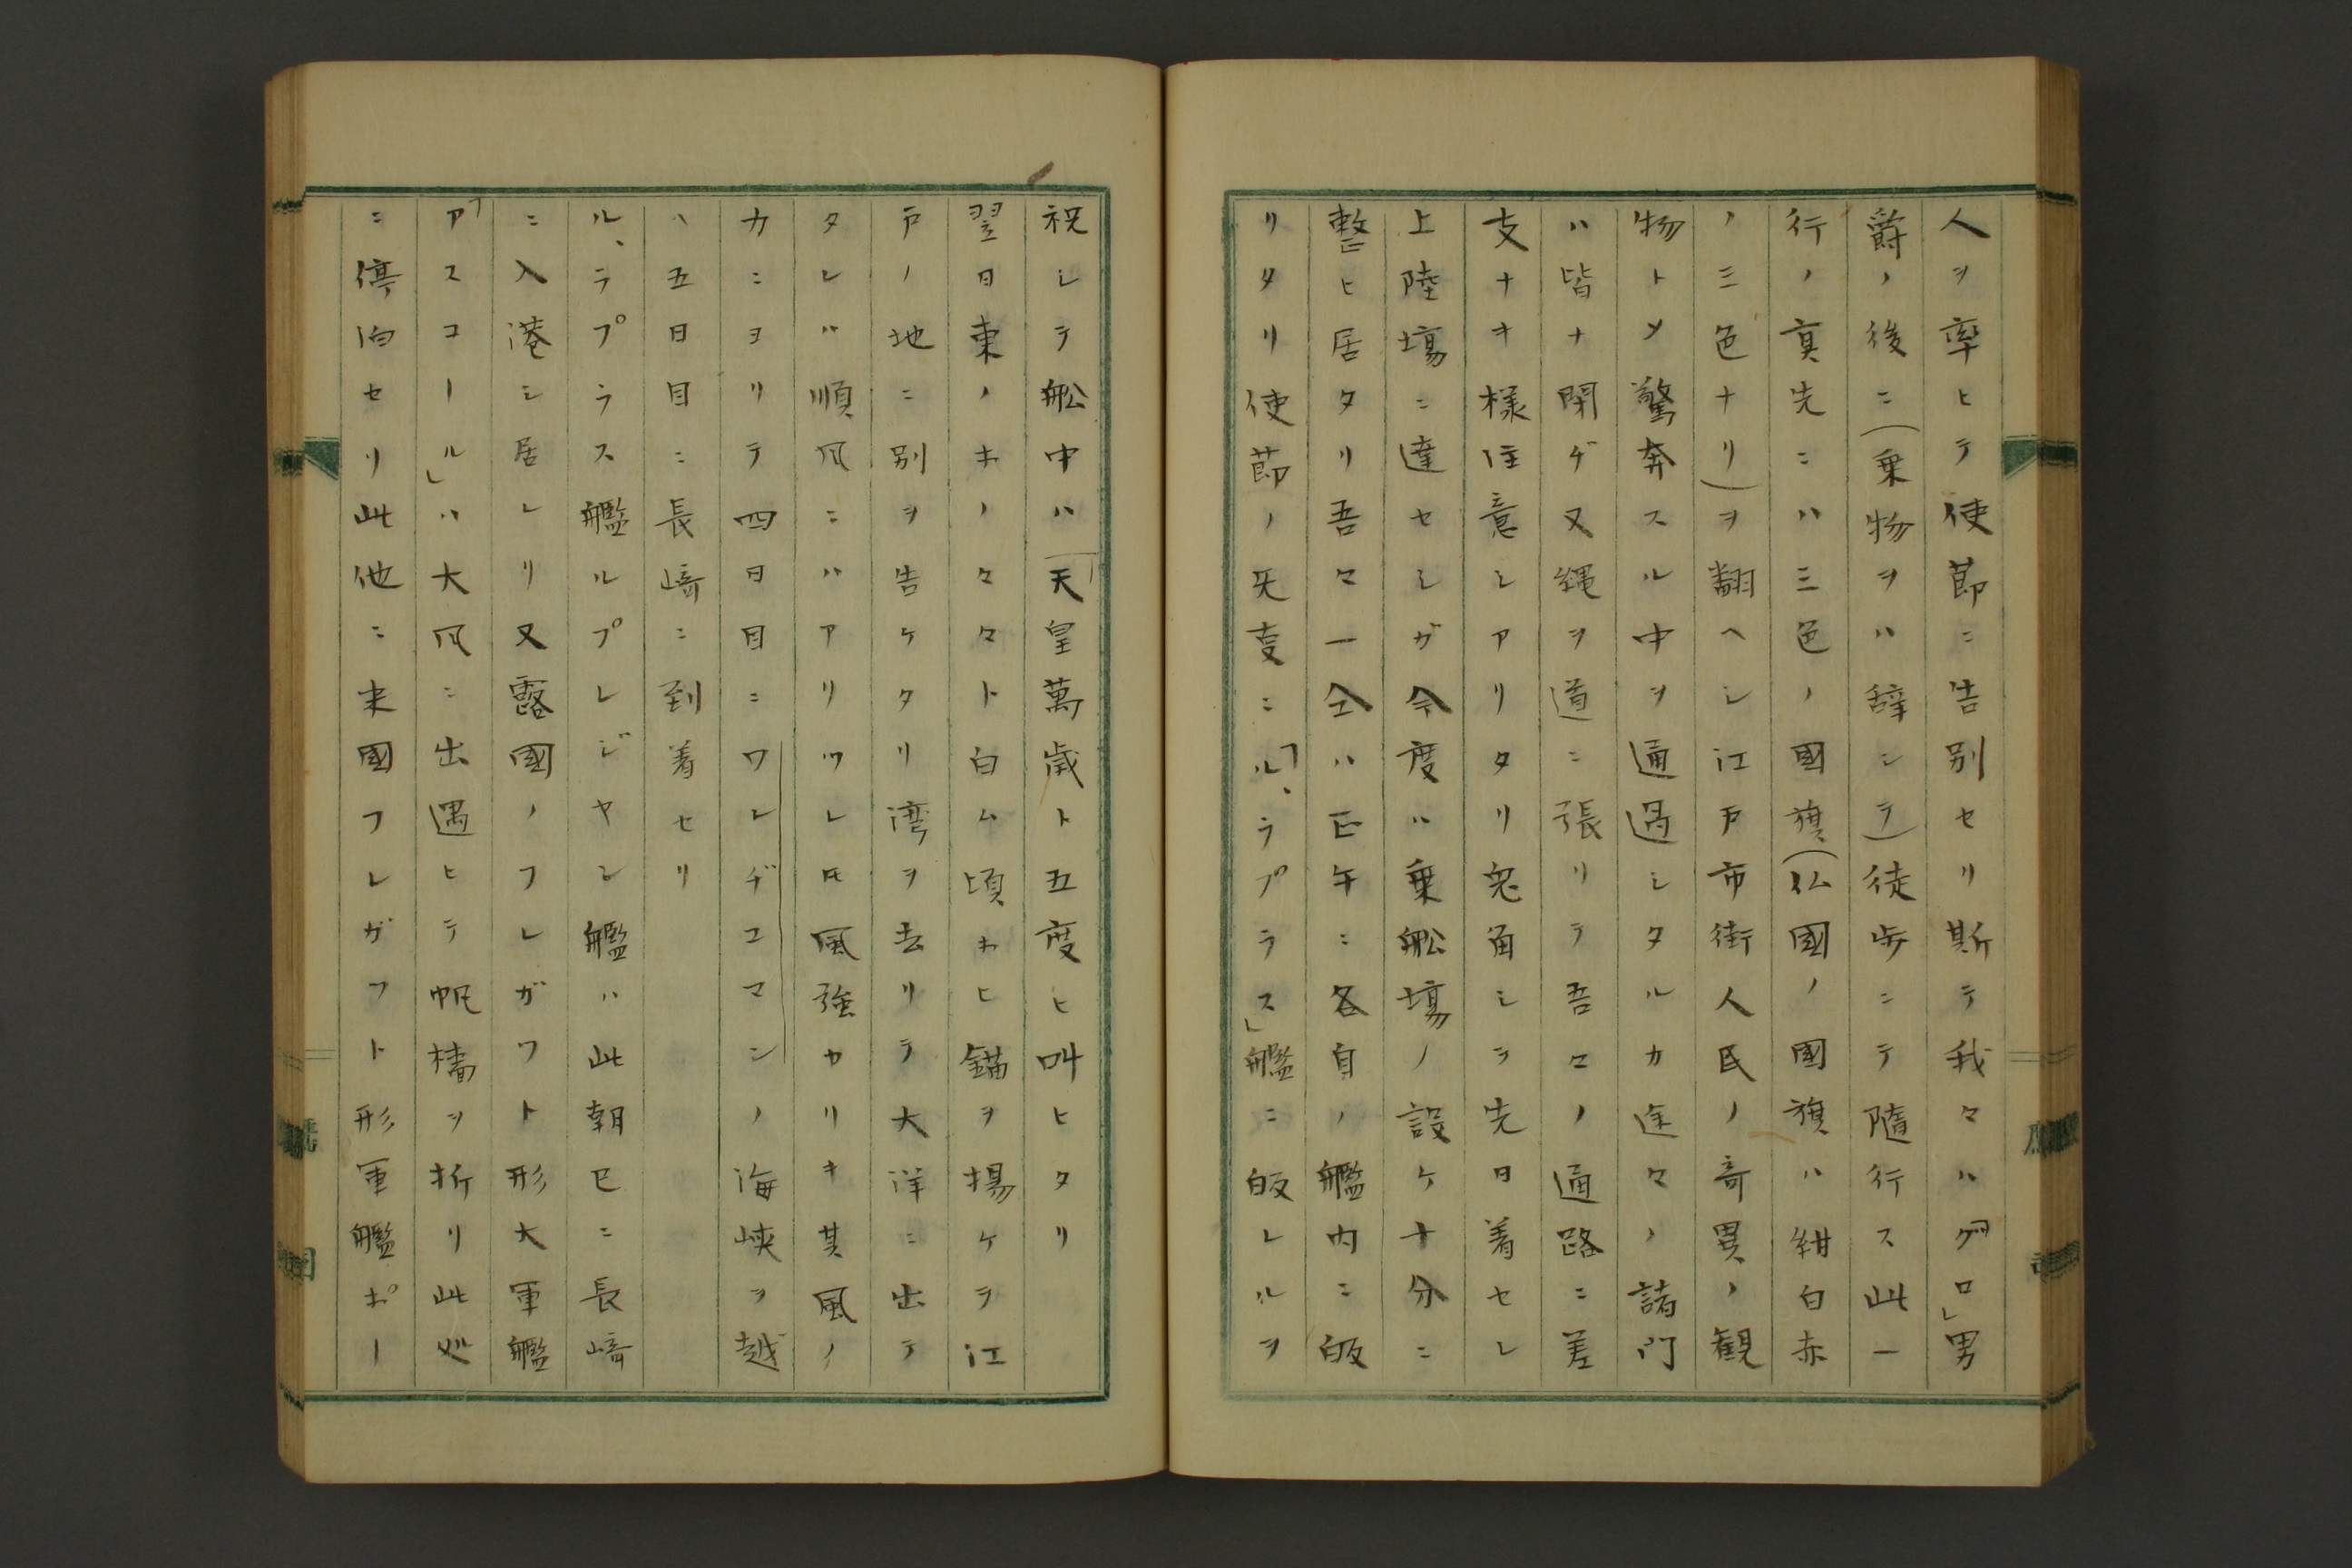 人ヲ率ヒテ使節ニ告別セリ斯テ我々ハ「グロ」男
爵ノ後ニ(乗物ヲハ辞シテ)徒歩ニテ隨行ス此一
行ノ真先ニハ三色ノ國旗(仏國ノ國旗ハ紺白赤
ノ三色ナリ)ヲ翻ヘシ江戸市街人民ノ奇異ノ観
物トメ驚奔スル中ヲ通過シタルカ途々ノ諸門
ハ皆ナ閉ヂ又縄ヲ道ニ張リテ吾々ノ通路ニ差
支ナキ様注意シアリタリ兎角シテ先日着セシ
上陸塲ニ達セシガ今度ハ乗舩塲ノ設ケ十分ニ
整ヒ居タリ吾々一仝ハ正午ニ各自ノ艦内ニ皈
リタリ使節ノ旡叓ニ「ル、ラプラス」艦ニ皈レルヲ
祝シテ舩中ハ「天皇萬歳ト五度ヒ叫ヒタリ
翌日東ノホノ々々ト白ム頃ホヒ錨ヲ揚ケテ江
戸ノ地ニ別ヲ告ケタリ湾ヲ去リテ大洋ニ出テ
タレバ順风ニハアリツレ𪜈風強カリキ其風ノ
カニヨリテ四日目ニワレヂユマンノ海峡ヲ越
ヘ五日目ニ長﨑ニ到着セリ
ル、ラプラス艦ルプレジヤン艦ハ此朝已ニ長﨑
ニ入港シ居レリ又露國ノフレガワト形大軍艦
「アスコールˮ」ハ大风ニ出遇ヒテ帆檣ヲ折リ此処
ニ停泊セリ此他ニ米國フレガフト形軍艦ポー